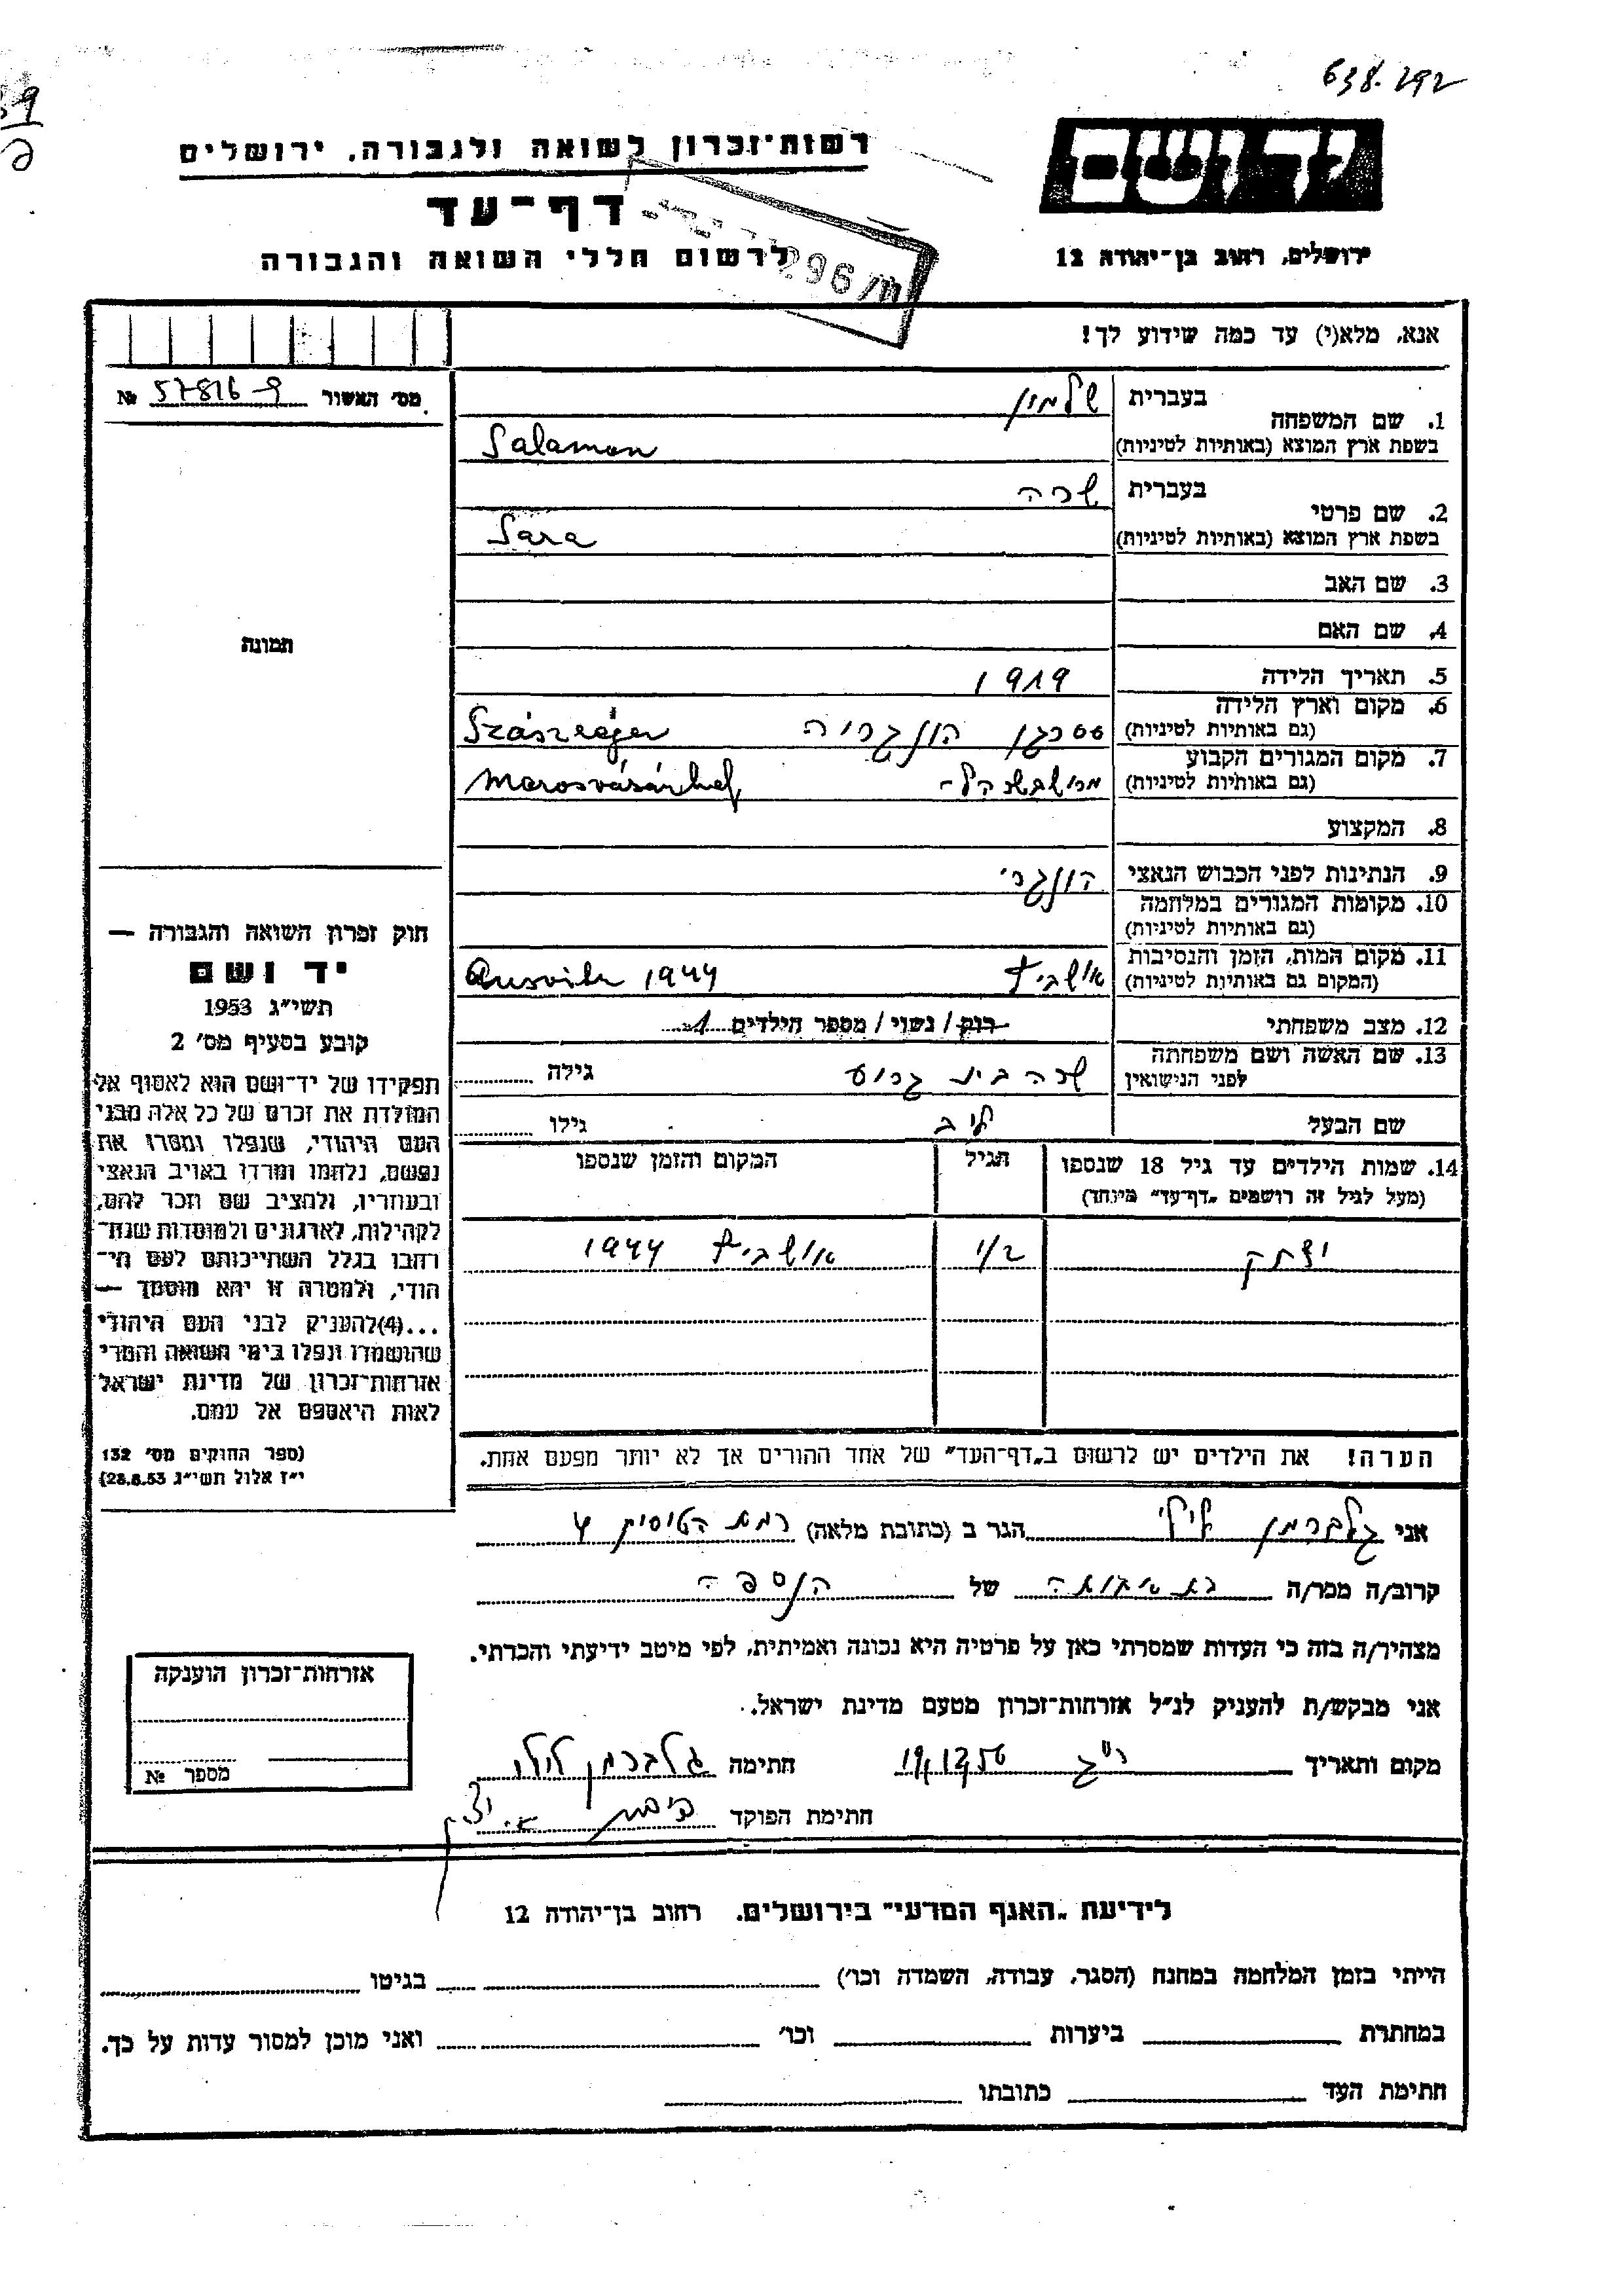 638.292
רשות־זכרון לשואה ולגבורה, ירושלים
יד ושם
דף־עד
לרשום חללי השואה והגבורה
ירושלים, רחוב בן־יהודה 12
296/m
אנא, מלא(י) עד כמה שידוע לך!
מס׳ האשור 57816-9 №
1. שם המשפחה
בעברית שלמון
בשפת ארץ המוצא (באותיות לטיניות) Salamon
2. שם פרטי
בעברית שרה
בשפת ארץ המוצא (באותיות לטיניות) Sara
3. שם האב
4. שם האם
5. תאריך הלידה 1919
6. מקום וארץ הלידה
(גם באותיות לטיניות) הונגריה
7. מקום המגורים הקבוע
(גם באותיות לטיניות)
8. המקצוע
9. הנתינות לפני הכבוש הנאצי הונגרי
10. מקומות המגורים במלחמה
(גם באותיות לטיניות)
11. מקום המות, הזמן והנסיבות
(המקום גם באותיות לטיניות) אושביץ 1944
12. מצב משפחתי רוק / נשוי / מספר הילדים 1
13. שם האשה ושם משפחתה
לפני הנישואין שרה בית גרוס גילה
שם הבעל ליב גילו
14. שמות הילדים עד גיל 18 שנספו
(מעל לגיל זה רושמים „דף־עד״ מיוחד)
הגיל
המקום והזמן שנספו
יצחק 1/2 אושביץ 1944
הערה! את הילדים יש לרשום ב„דף־העד״ של אחד ההורים אך לא יותר מפעם אחת.
תמונה
חוק זכרון השואה והגבורה —
יד ושם
תשי״ג 1953
קובע בסעיף מס׳ 2
תפקידו של יד־ושם הוא לאסוף אל
המולדת את זכרם של כל אלה מבני
העם היהודי, שנפלו ומסרו את
נפשם, נלחמו ומרדו באויב הנאצי
ובעוזריו, ולהציב שם וזכר להם,
לקהילות, לארגונים ולמוסדות שנח־
רבו בגלל השתייכותם לעם הי־
הודי, ולמטרה זו יהא מוסמך —
...(4)להעניק לבני העם היהודי
שהושמדו ונפלו בימי השואה והמרי
אזרחות־זכרון של מדינת ישראל
לאות היאספם אל עמם.
(ספר החוקים מס׳ 132
י״ז אלול תשי״ג 28.8.53)
אני גלברמן לילי הגר ב (כתובת מלאה)
קרוב/ה מכר/ה של הנספה
מצהיר/ה בזה כי העדות שמסרתי כאן על פרטיה היא נכונה ואמיתית, לפי מיטב ידיעתי והכרתי.
אני מבקש/ת להעניק לנ״ל אזרחות־זכרון מטעם מדינת ישראל.
מקום ותאריך ר״ג חתימה גלברמן לילי
חתימת הפוקד
אזרחות־זכרון הוענקה
מספר №
לידיעת „האגף המדעי״ בירושלים, רחוב בן־יהודה 12
הייתי בזמן המלחמה במחנה (הסגר, עבודה, השמדה וכו׳) בגיטו
במחתרת ביערות וכו׳ ואני מוכן למסור עדות על כך.
חתימת העד כתובתו